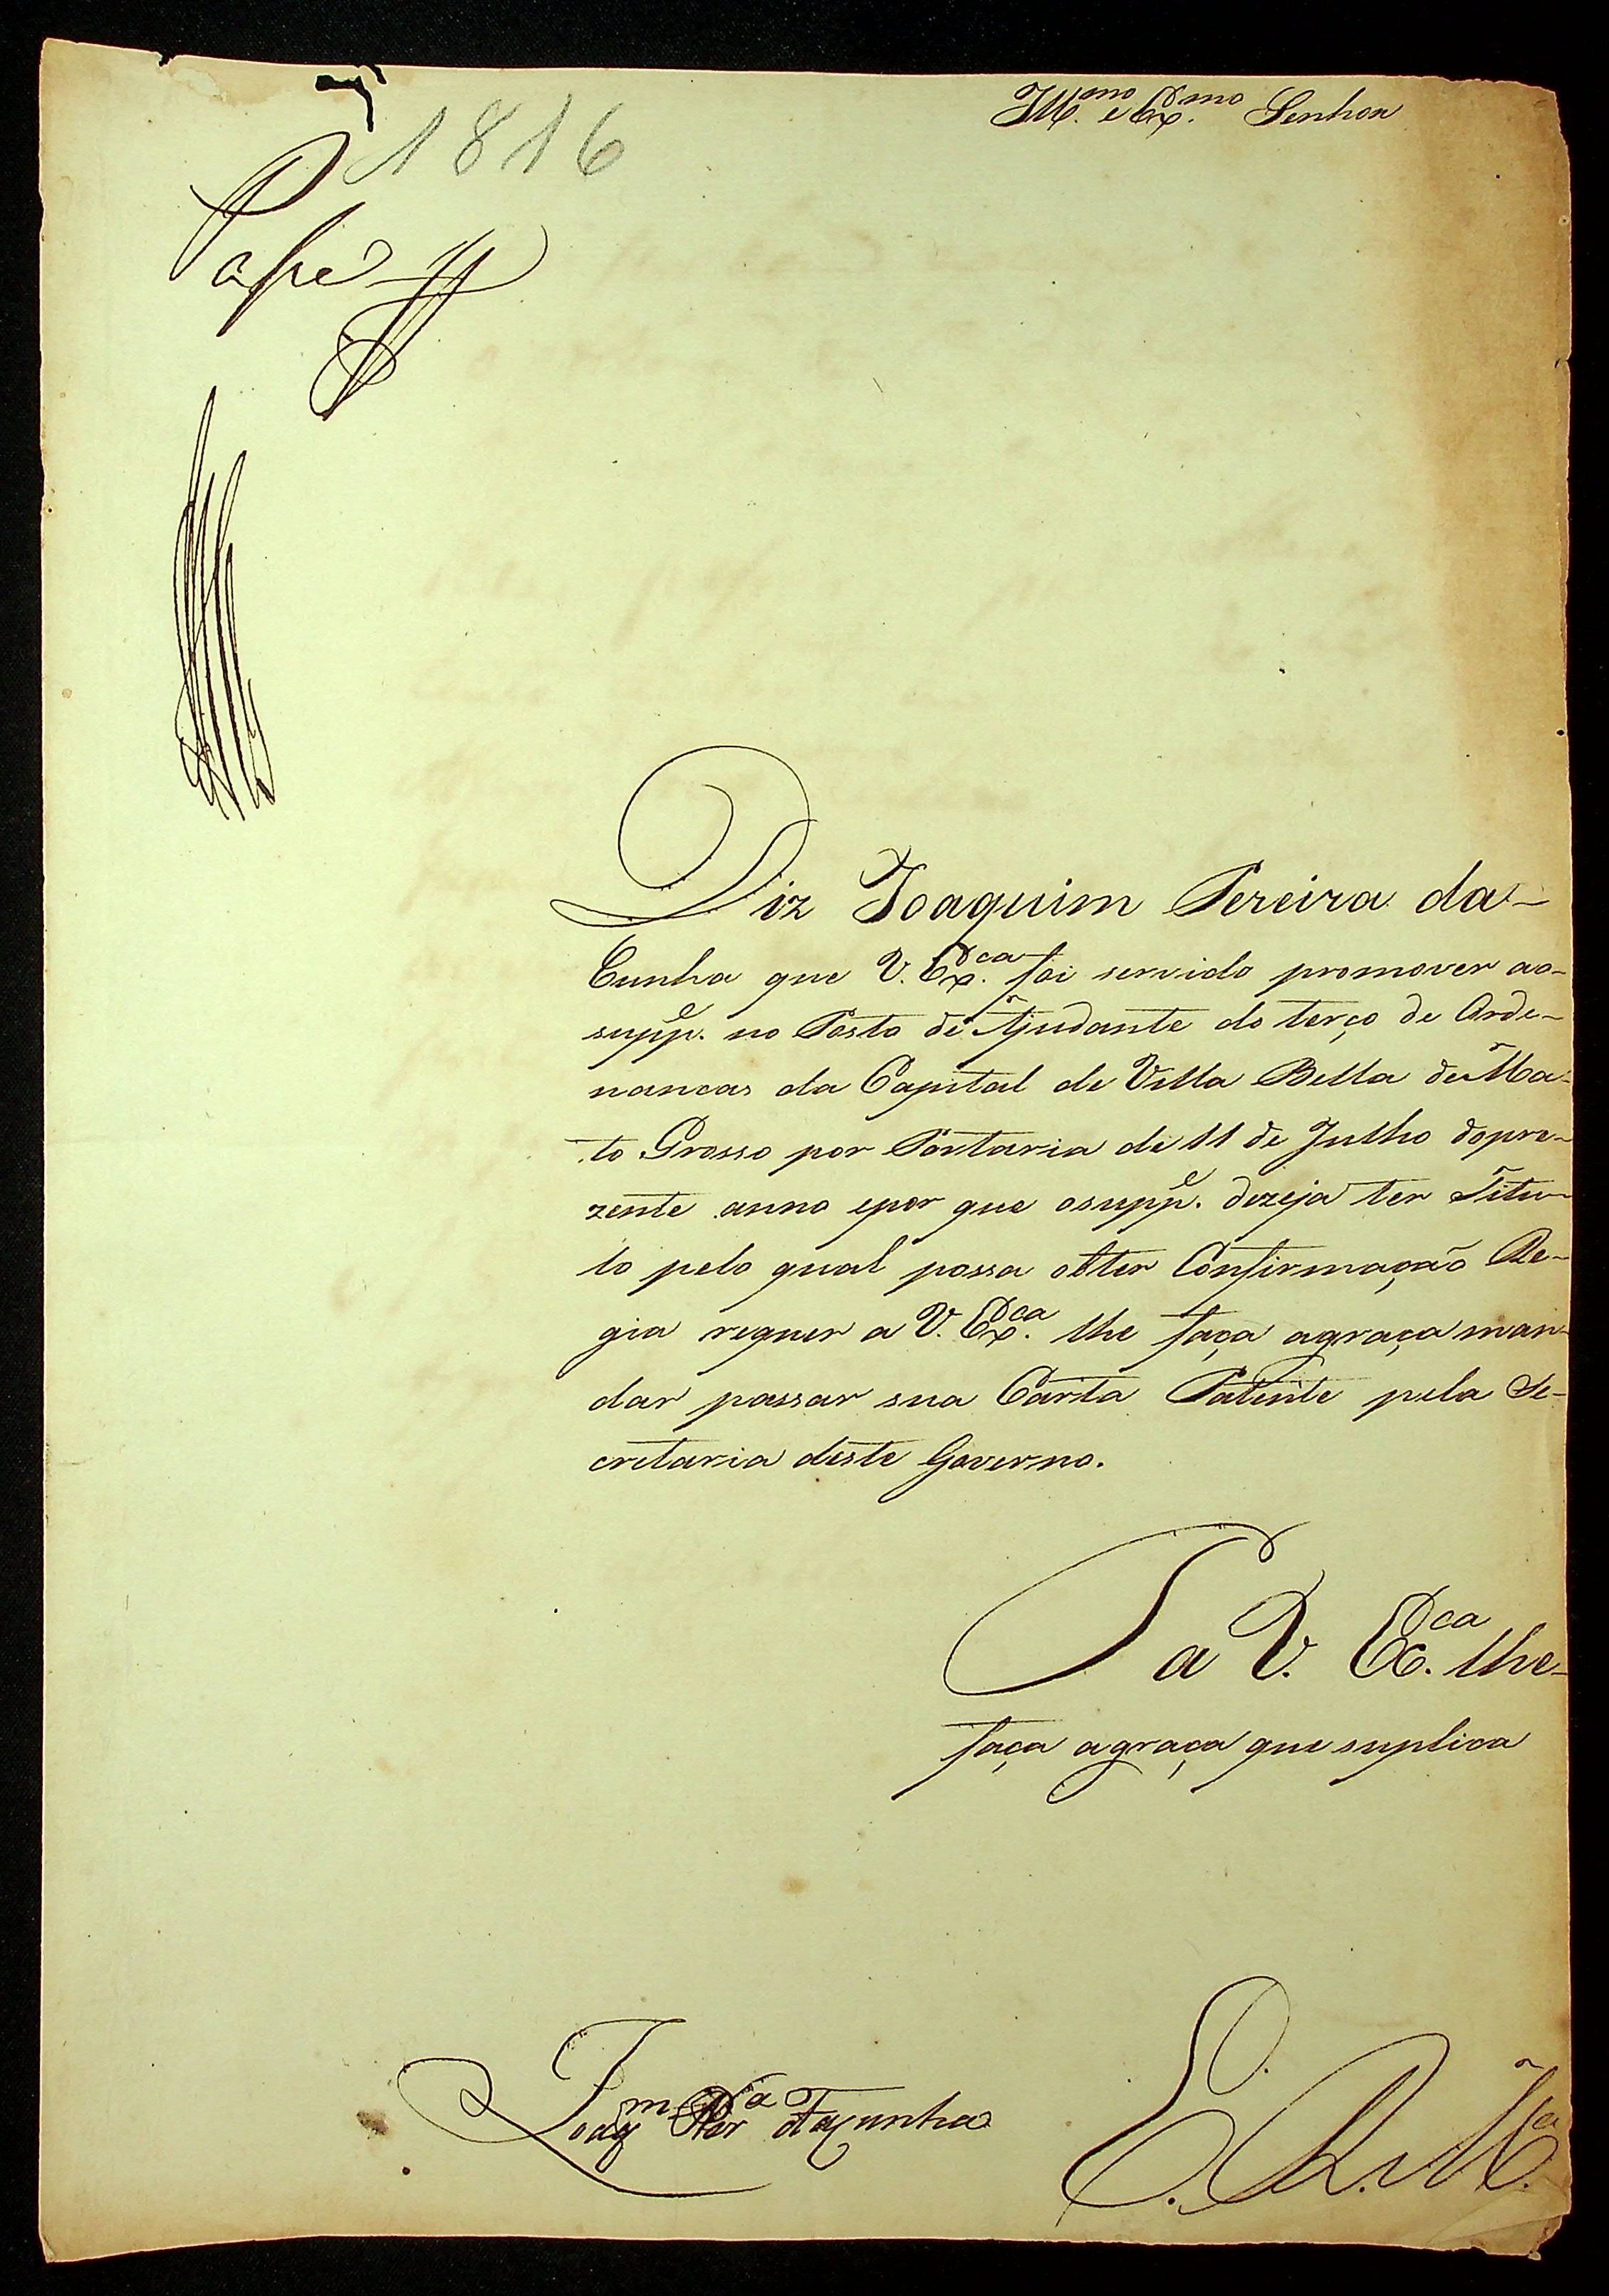 Ill.mo e Ex.mo Senhor
1816
Passe
Diz Joaquim Pereira da-
Cunha que V. Ex.ca foi servido promover ao-
supp.e no Posto de Ajudante do terço de Orde-
nancas da Capital de Villa Bella de Ma-
to Grosso por Portaria de 11 de Julho do pre-
zente anno epor que osupp.e dezeja ter Titu-
lo pelo qual possa obter Confirmação Re-
gia requer a V. Ex.ca lhe faça agraça man-
dar passar sua Carta Patente pela Se-
cretaria deste Governo.
P a V. Ex.ca lhe-
faça agraça que suplica
E. R. M.ce
Joaq.m Per.a daCunha